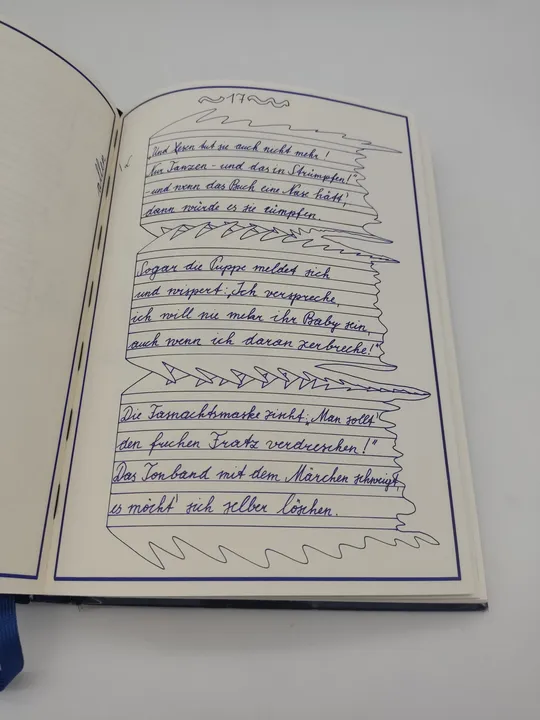 17
alle
Und lesen tut sie auch nicht mehr!
Nur Tanzen - und das in Strümpfen!"
und wenn das Buch eine Nase hätt',
dann würde es sie rümpfen.
Sogar die Puppe meldet sich
und wispert: „Ich verspreche,
ich will nie mehr ihr Baby sein,
auch wenn ich daran zerbreche!"
Die Fasnachtsmaske zischt: „Man sollt'
den frechen Fratz verdreschen!"
Das Tonband mit dem Märchen schweigt,
es möcht' sich selber löschen.